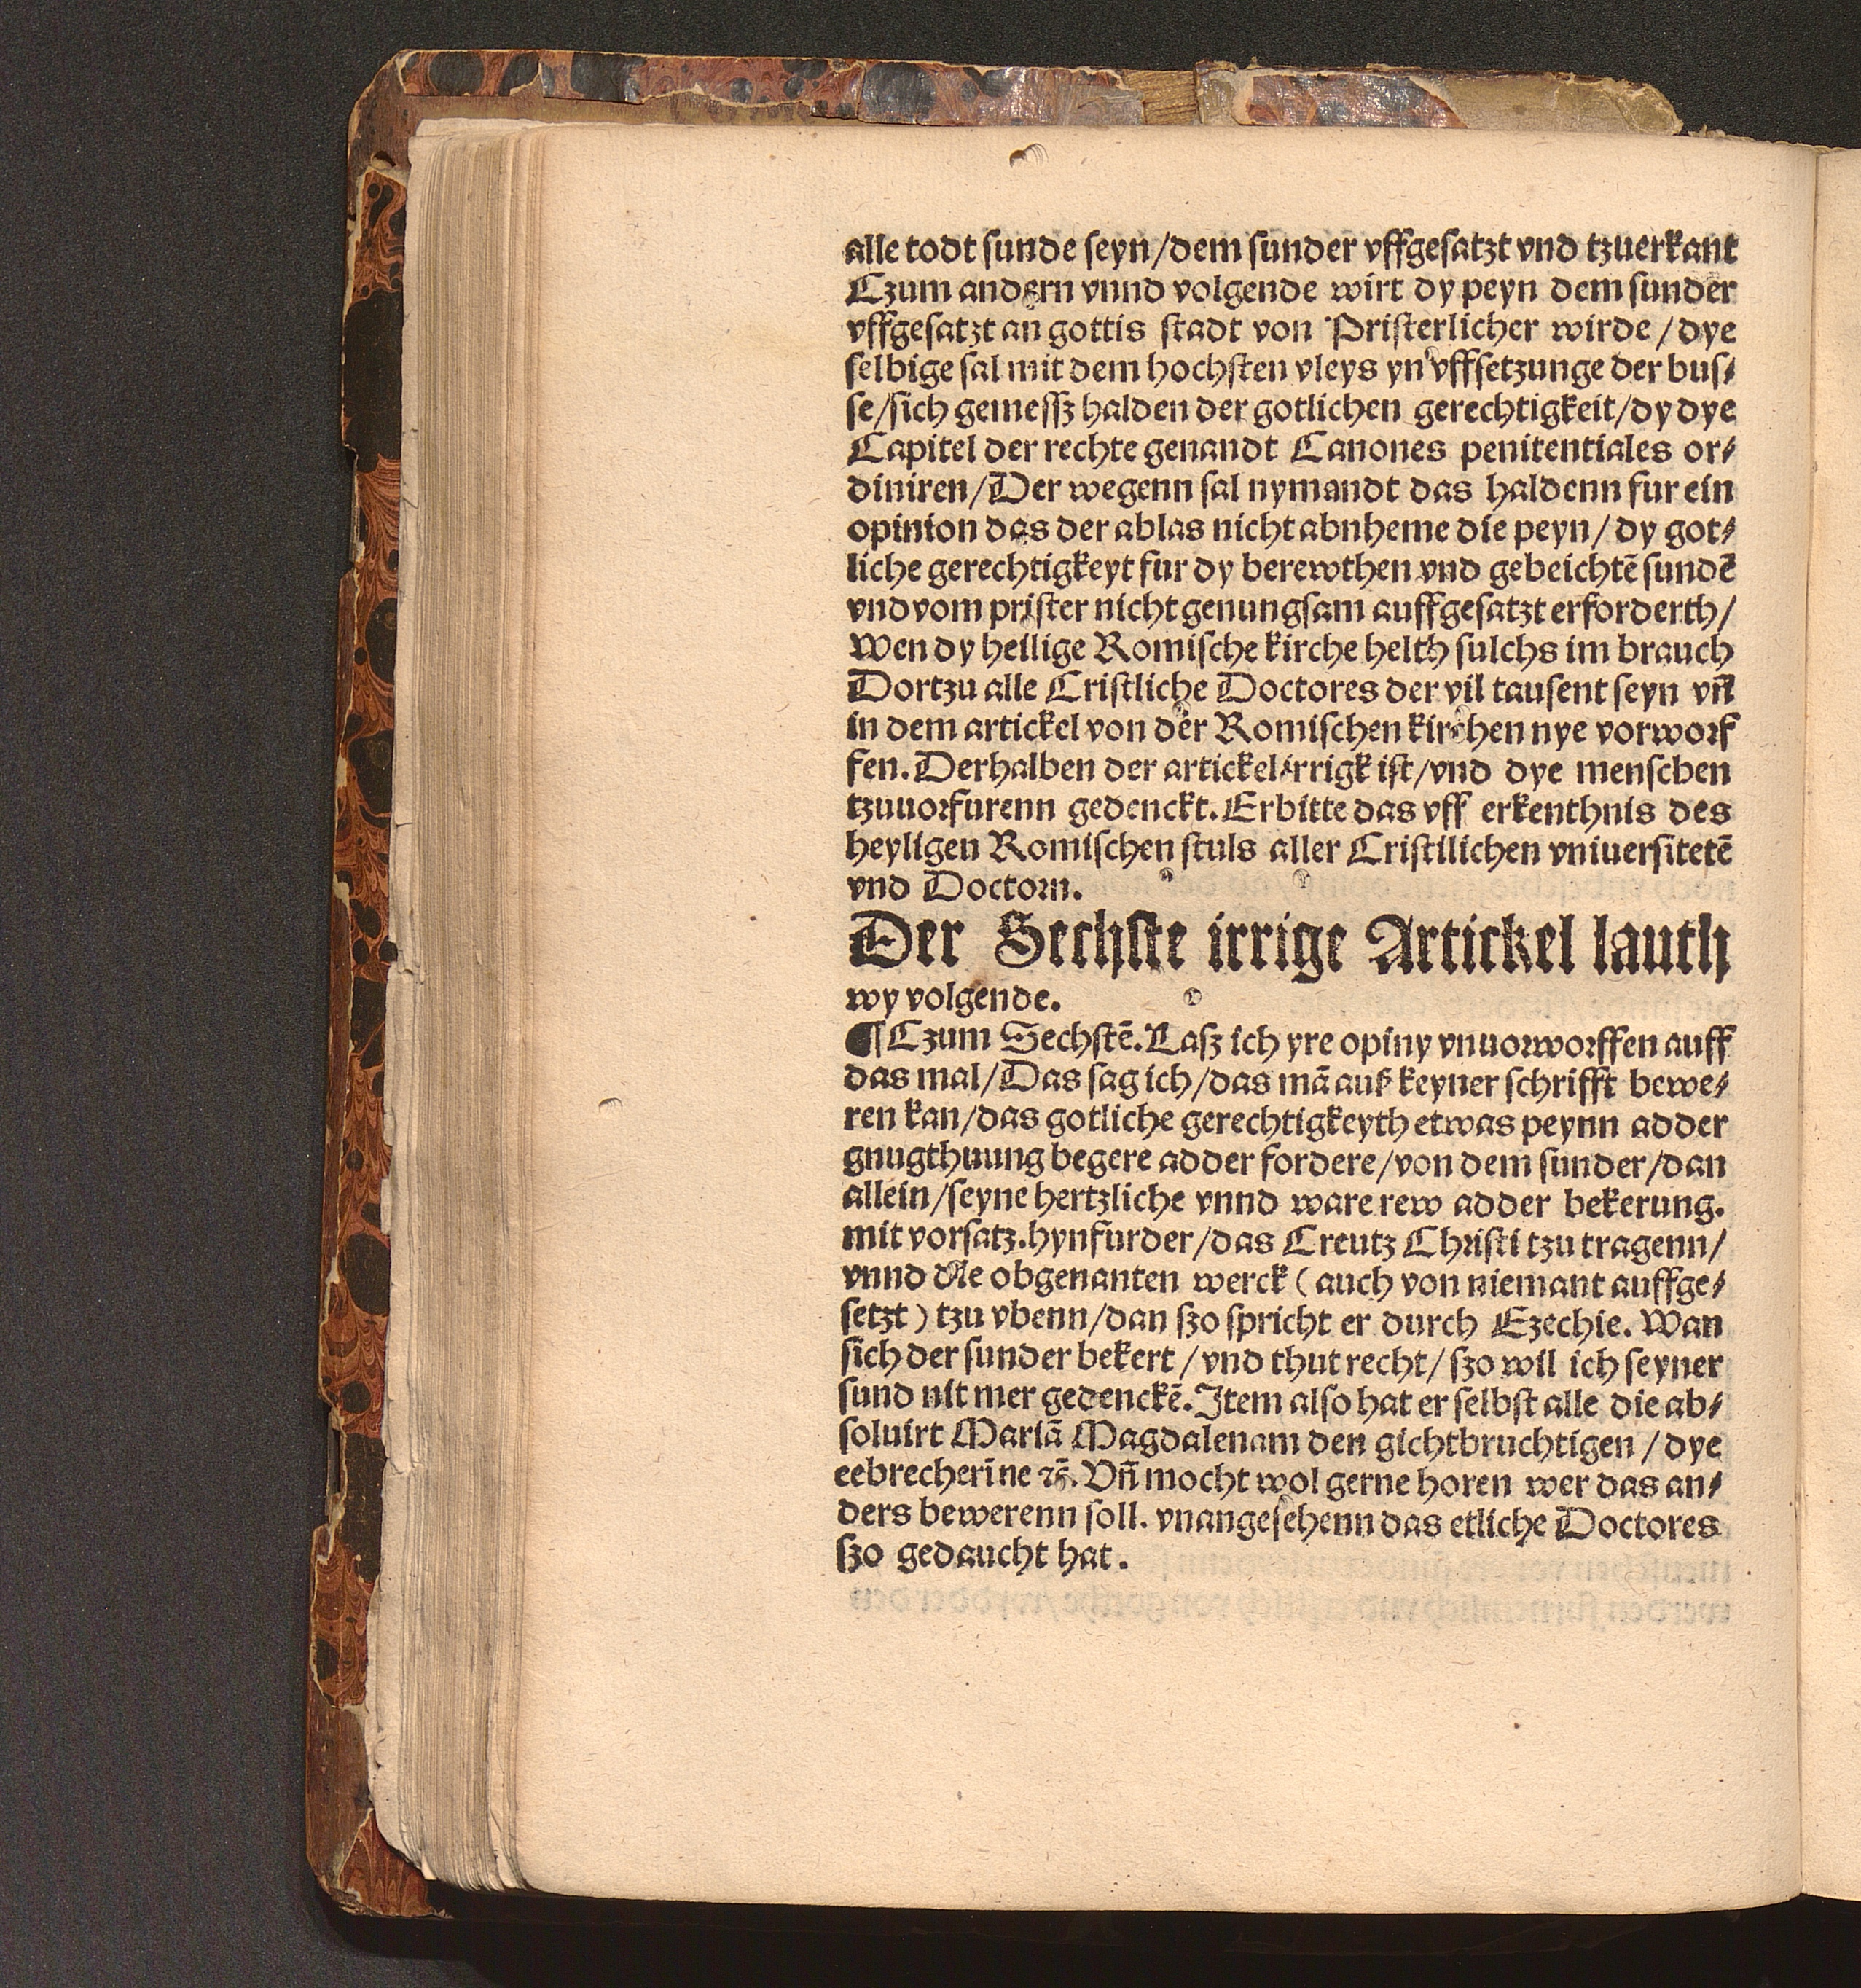 alle todt sunde seyn/dem sunder vffgesatzt vnd tzuerkant
Czum andern vnnd volgende wirt dy peyn dem sunder
vffgesatzt an gottis stadt von Pristerlicher wirde/dye
selbige sal mit dem hochsten vleys yn vffsetzunge der bus⸗
se/sich gemessz halden der gotlichen gerechtigkeit/dy dye
Capitel der rechte genandt Canones penitentiales or⸗
diniren/Der wegenn sal nymandt das haldenn fur ein
opinion das der ablas nicht abnheme die peyn/dy got⸗
liche gerechtigkeyt fur dy berewthen vnd gebeichtē sundē
vnd vom prister nicht genungsam auffgesatzt erforderth/
Wen dy heilige Romische kirche helth sulchs im brauch
Dortzu alle Cristliche Doctores der vil tausent seyn vñ
in dem artickel von der Romischen kirchen nye vorworf
fen. Derhalben der artickel irrigk ist/vnd dye menschen
tzuuorfurenn gedenckt. Erbitte das vff erkenthnis des
heyligen Romischen stuls aller Cristilichen vniuersitetē
vnd Doctorn.
Der Sechste irrige Artickel lauth
wy volgende.
¶Czum Sechstē. Lasz ich yre opiny vnuorworffen auff
das mal/Das sag ich/das mā auß keyner schrifft bewe⸗
ren kan/das gotliche gerechtigkeyth etwas peynn adder
gnugthuung begere adder fordere/von dem sunder/dan
allein/seyne hertzliche vnnd ware rew adder bekerung.
mit vorsatz. hynfurder/das Creutz Christi tzu tragenn/
vnnd die obgenanten werck (auch von niemant auffge⸗
setzt) tzu vbenn/dan szo spricht er durch Ezechie. Wan
sich der sunder bekert/vnd thut recht/szo wil ich seyner
sund nit mer gedenckē. Item also hat er selbst alle die ab⸗
soluirt Mariā Magdalenam den gichtbruchtigen/dye
eebrecherīne ꝛč. Vñ mocht wol gerne horen wer das an⸗
ders bewerenn soll. vnangesehenn das etliche Doctores
szo gedaucht hat.